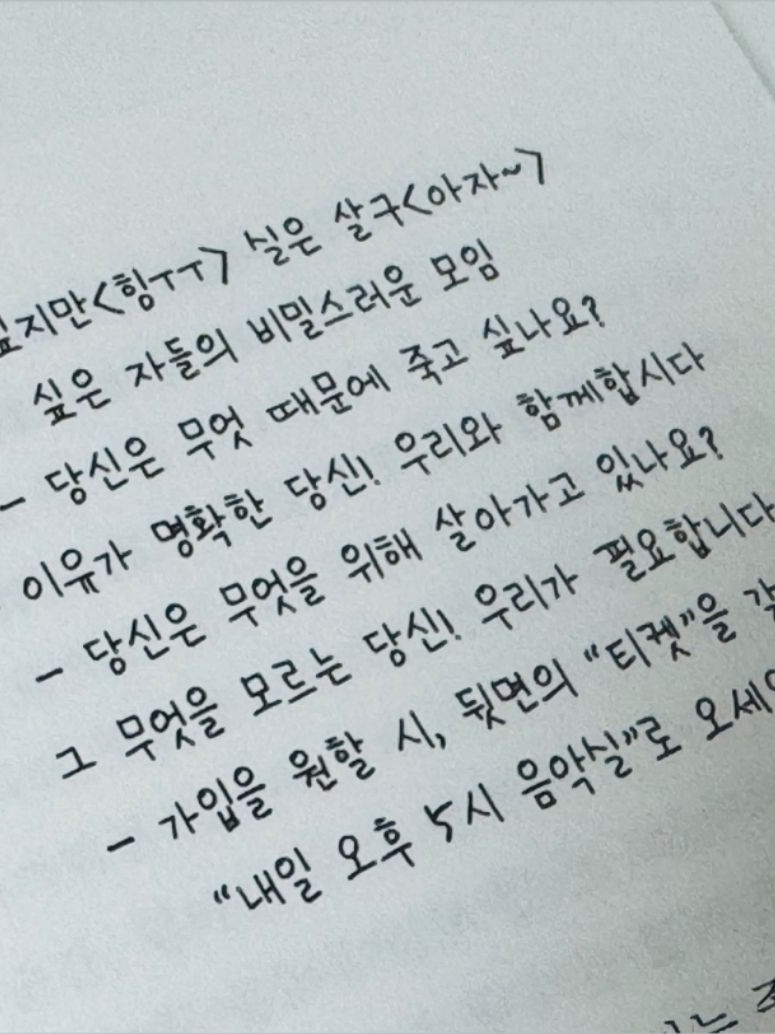 싶지만<힝ㅜㅜ> 실은 살구<아자~>
싶은 자들의 비밀스러운 모임
- 당신은 무엇 때문에 죽고 싶나요?
이유가 명확한 당신! 우리와 함께합시다
- 당신은 무엇을 위해 살아가고 있나요?
그 무엇을 모르는 당신! 우리가 필요합니다
- 가입을 원할 시, 뒷면의 "티켓"을
"내일 오후 5시 음악실"로